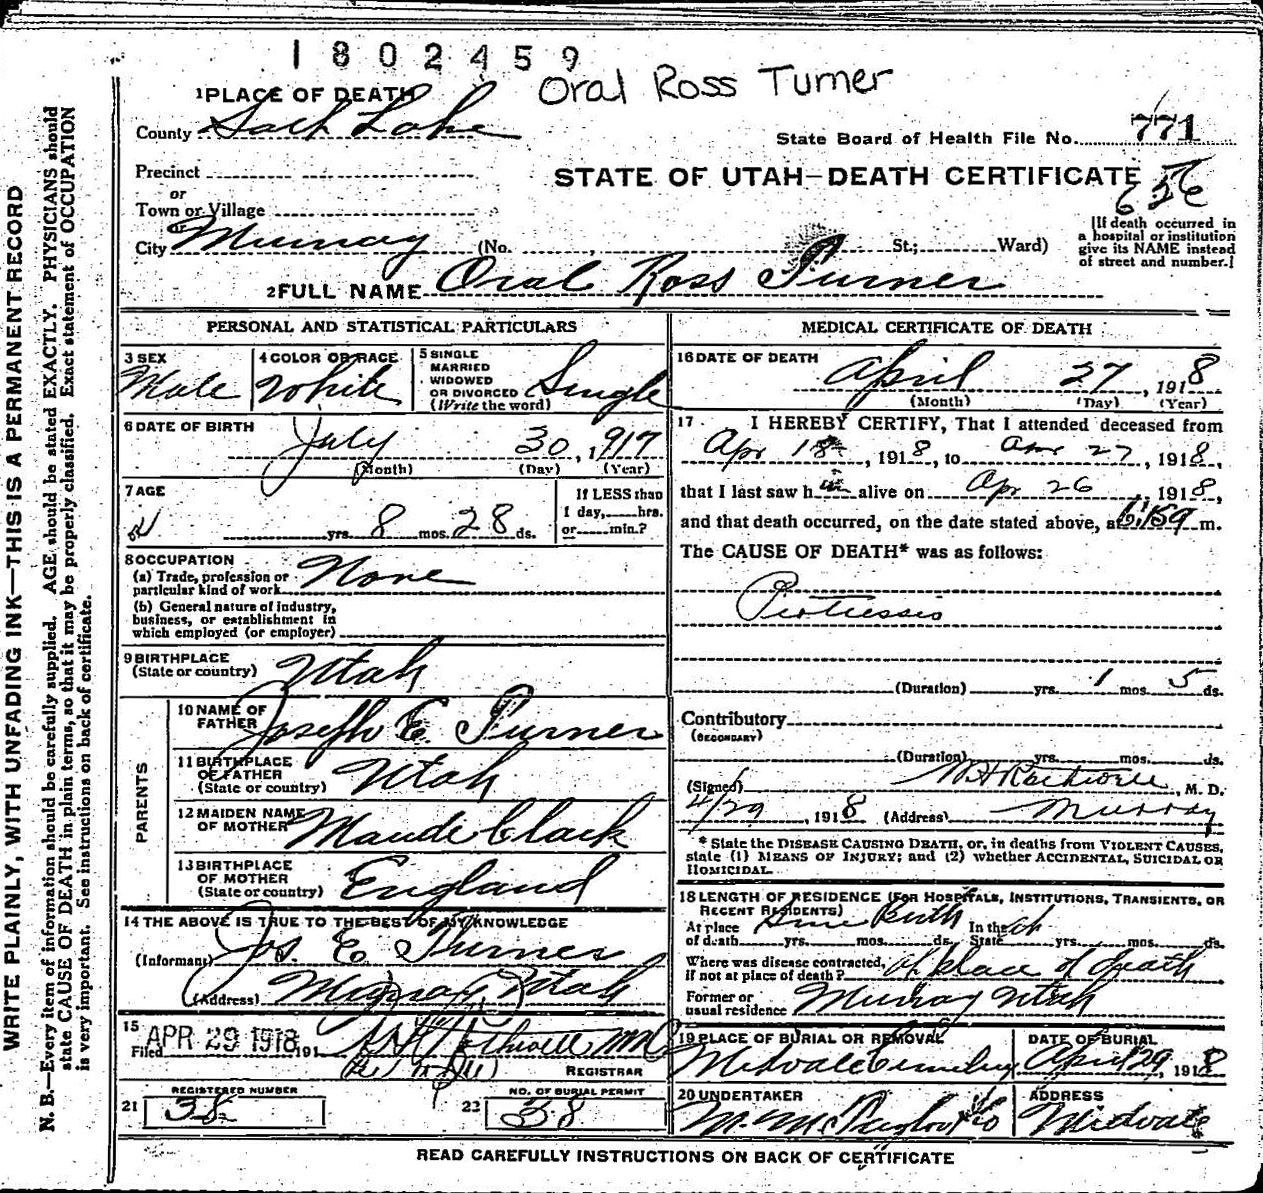 1802459
Oral Ross Turner
1 PLACE OF DEATH
County Salt Lake
State Board of Health File No. 771
Precinct
STATE OF UTAH—DEATH CERTIFICATE
or
Town or Village
or
City Murray (No. St.; Ward)
[If death occurred in
a hospital or institution
give its NAME instead
of street and number.]
2 FULL NAME Oral Ross Turner
PERSONAL AND STATISTICAL PARTICULARS
3 SEX
Male
4 COLOR OR RACE
White
5 SINGLE
MARRIED
WIDOWED
OR DIVORCED
(Write the word)
Single
6 DATE OF BIRTH
July 30, 1917
(Month) (Day) (Year)
7 AGE
yrs. 8 mos. 28 ds.
If LESS than
1 day, hrs.
or min.?
8 OCCUPATION
(a) Trade, profession or
particular kind of work None
(b) General nature of industry,
business, or establishment in
which employed (or employer)
9 BIRTHPLACE
(State or country) Utah
PARENTS
10 NAME OF
FATHER Joseph E. Turner
11 BIRTHPLACE
OF FATHER
(State or country) Utah
12 MAIDEN NAME
OF MOTHER Maude Clark
13 BIRTHPLACE
OF MOTHER
(State or country) England
14 THE ABOVE IS TRUE TO THE BEST OF MY KNOWLEDGE
(Informant) Jos. E. Turner
(Address) Murray Utah
15
Filed APR 29 1918 191
REGISTRAR
REGISTERED NUMBER
21 38
NO. OF BURIAL PERMIT
22 38
MEDICAL CERTIFICATE OF DEATH
16 DATE OF DEATH
April 27, 1918
(Month) (Day) (Year)
17 I HEREBY CERTIFY, That I attended deceased from
Apr 18, 1918, to Apr 27, 1918,
that I last saw him alive on Apr 26, 1918,
and that death occurred, on the date stated above, at m.
The CAUSE OF DEATH* was as follows:
Pertussis
(Duration) yrs. 1 mos. 5 ds.
Contributory
(SECONDARY)
(Duration) yrs. mos. ds.
(Signed) M. D.
4/29, 1918 (Address) Murray
* State the DISEASE CAUSING DEATH, or, in deaths from VIOLENT CAUSES,
state (1) MEANS OF INJURY; and (2) whether ACCIDENTAL, SUICIDAL OR
HOMICIDAL.
18 LENGTH OF RESIDENCE (FOR HOSPITALS, INSTITUTIONS, TRANSIENTS, OR
RECENT RESIDENTS) Since Birth
At place
of death yrs. mos. ds. In the
State yrs. mos. ds.
Where was disease contracted,
if not at place of death? At place of death
Former or
usual residence Murray Utah
19 PLACE OF BURIAL OR REMOVAL
Midvale Cemetery
DATE OF BURIAL
April 29, 1918
20 UNDERTAKER
ADDRESS
Midvale
READ CAREFULLY INSTRUCTIONS ON BACK OF CERTIFICATE
WRITE PLAINLY, WITH UNFADING INK—THIS IS A PERMANENT RECORD
N. B.—Every item of information should be carefully supplied. AGE should be stated EXACTLY. PHYSICIANS should
state CAUSE OF DEATH in plain terms, so that it may be properly classified. Exact statement of OCCUPATION
is very important. See instructions on back of certificate.